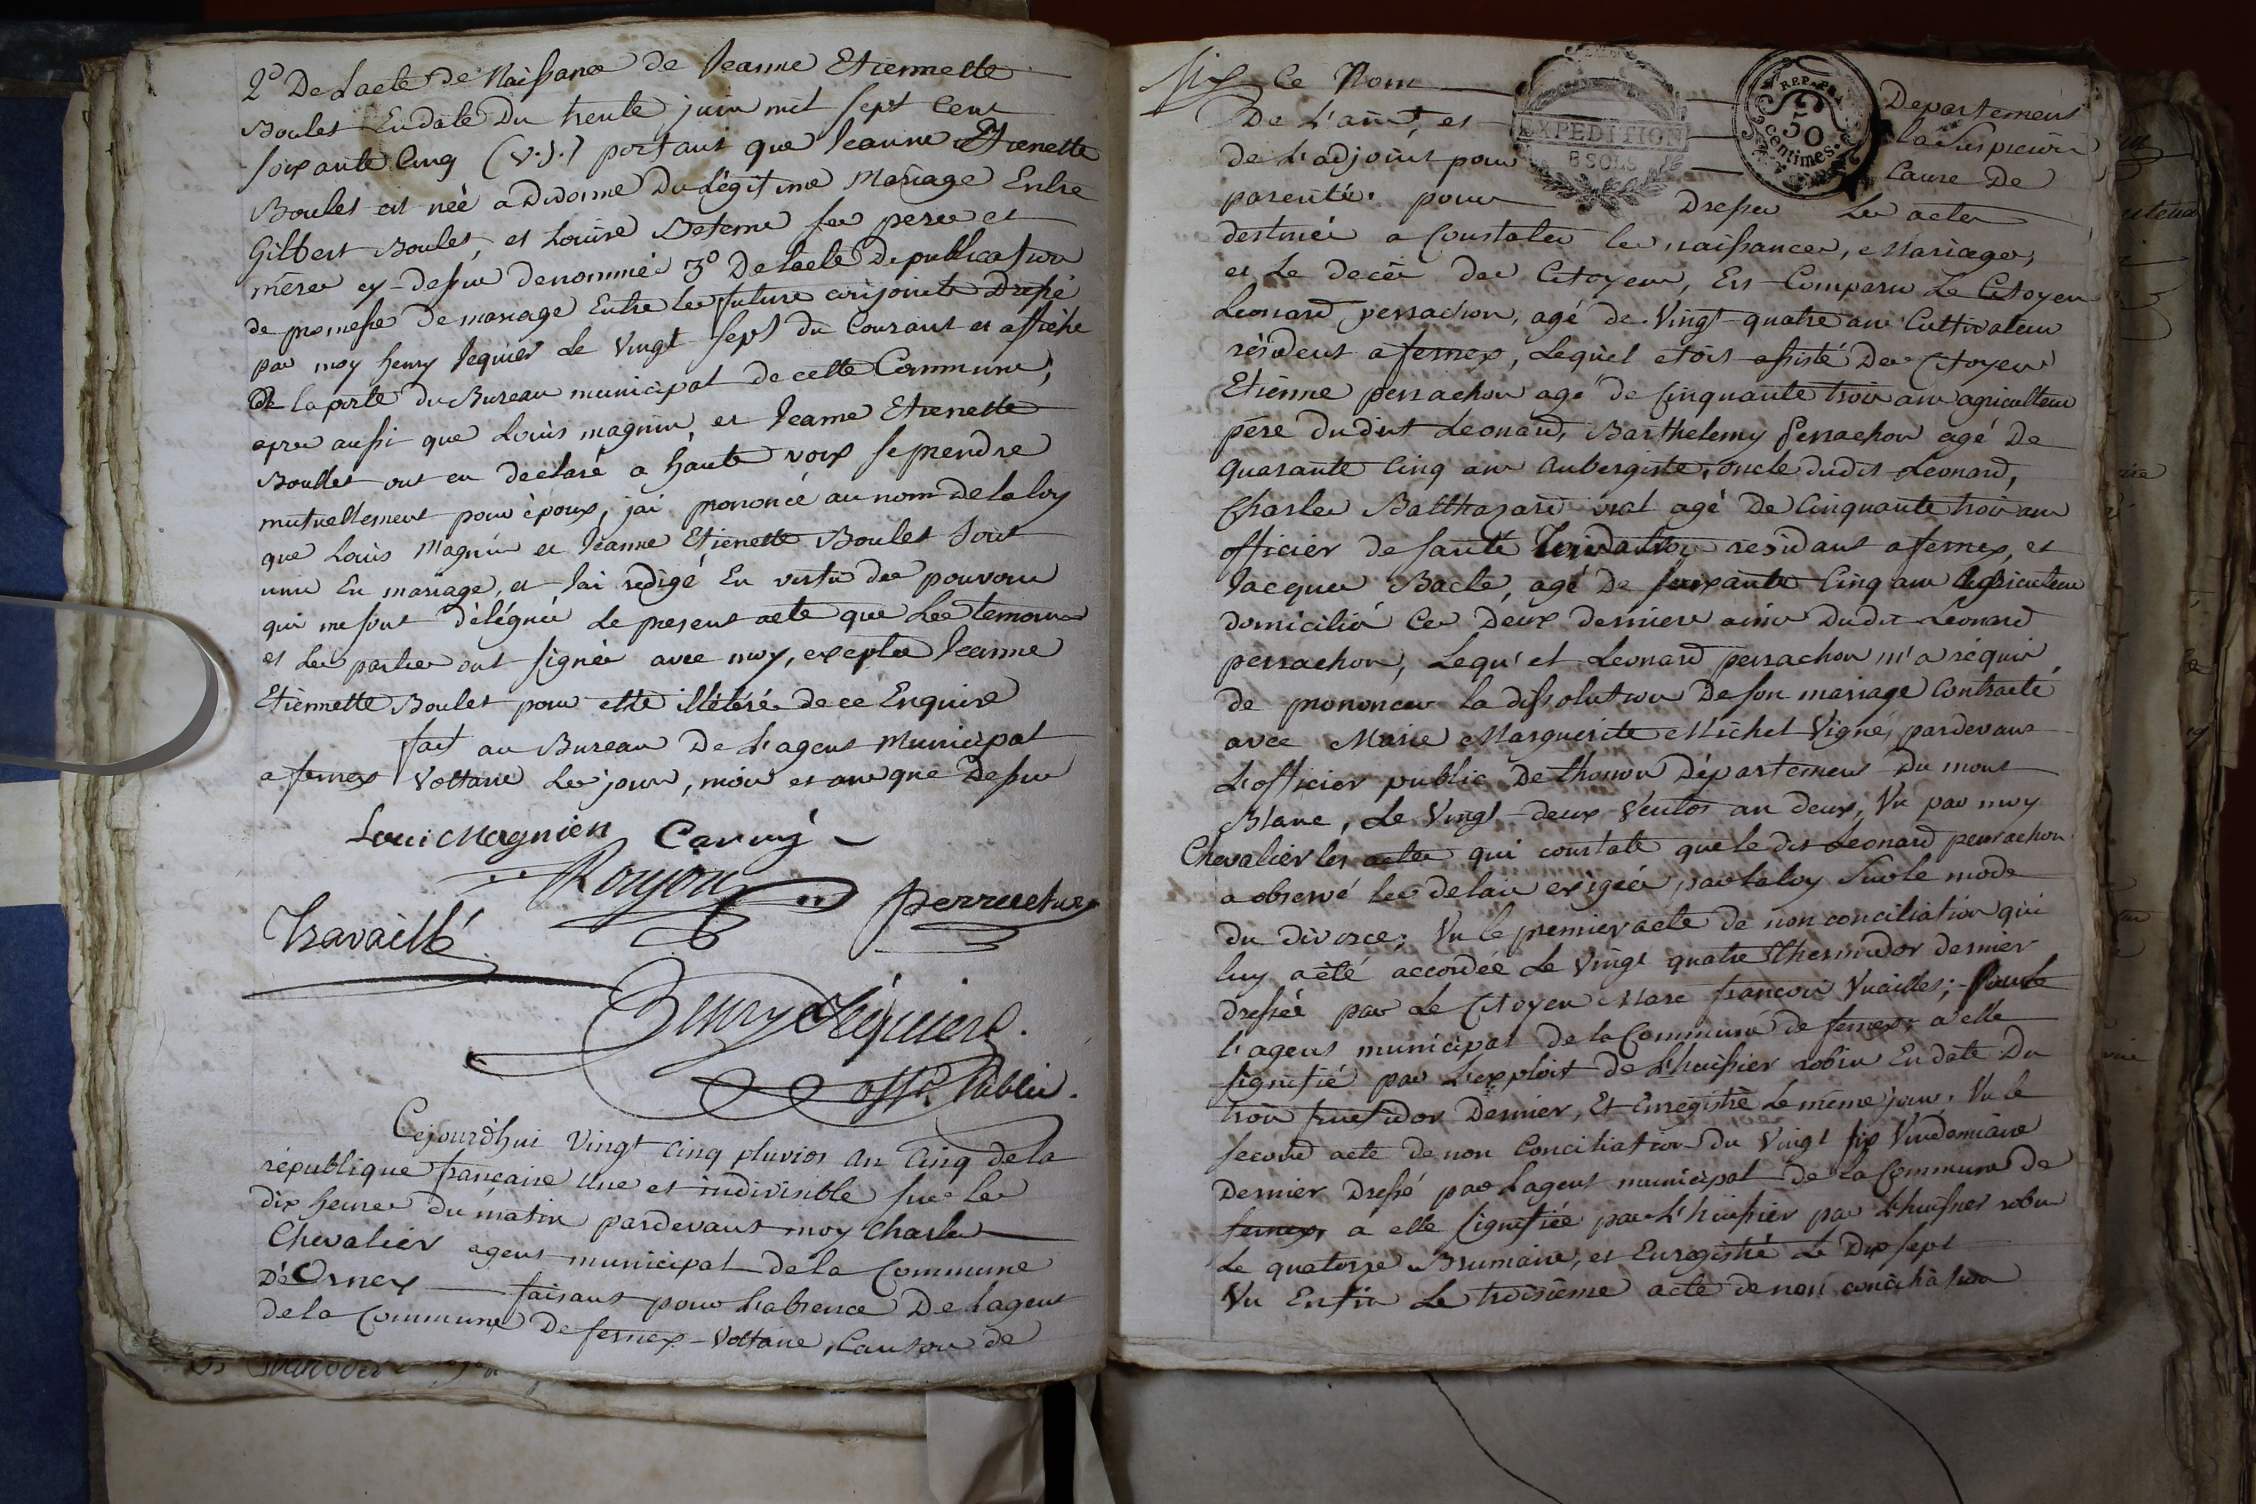 2º De Lacte De Naissance de Jeanne Etiennette
Boulet En date Du trente juin mil sept Cent
soixante Cinq (v.s.) portant que Jeanne Etienette
Boulet est néè a Divonne Du Légitime Mariage Entre
Gilbert Boulet, et Louise Deterne ses pere et
mère cy-dessus denommés 3º De lacte De publication
de promesse De mariage Entre les futurs conjoints Dressé
par moy henry Jequier Le Vingt-sept du Courant et affiché
a la porte du Bureau municipal de cette Commune,
apres aussi que Louis magnin, et Jeanne Etienette
Boullet ont eu declaré a haute voix se prendre
mutuellement pour èpoux, jai prononcé au nom de la loy
que Louis Magnin et Jeanne Etienette Boulet sont
unis En mariage, et Jai redigé En vertu des pouvoirs
qui me sont délégués Le present acte que Les temoins
et Les parties ont signés avec moy, exceptée Jeanne
Etiennette Boulet pour etre illétérée de ce Enquise
fait au Bureau De L'agent Municipal
a fernex Voltaire Les jour, mois et an que Dessus
Loui Magnien Carry
Roujou
Travaillé
Perruetuex
Henry Jéquier
offr. Public.
Cejourd'hui Vingt Cinq pluvios An Cinq de la
république française Une et indivisible sur les
dix heures du matin pardevant moy Charles
Chevalier agent municipal de la Commune
D'Ornex faisant pour L'absence De L'agent
de la Commune De fernex-Voltaire, Canton de
dix Ce Nom
Departement
De L'ain, et
la Suspicion
de L'adjoint pour
Cause De
parenté. pour
Dresser Les actes
EXPEDITION
8 SOLS
REP. FRA.
50
centimes.
destinés a Constater les naissances, Mariages,
et Le decès des Citoyens, Est Comparu Le Citoyen
Leonard perrachon, agé de Vingt-quatre ans Cultivateur
résident a fernex, Lequel etoit assisté Des Citoyens
Etienne perrachon agé de Cinquante trois ans agriculteur
pére dudit Leonard, Barthelemy perrachon agé De
quarante Cinq ans aubergiste, oncle dudit Leonard,
Charles Balthazard vial agé De Cinquante trois ans
officier de santé residant a fernex, et
Jacques Bacle, agé De soixante Cinq ans agriculteur
domicilié Ces Deux derniers amis Dudit Leonard
perrachon, Lequ'el Leonard perrachon m'a réquis
de prononcer La dissolution De son mariage Contracté
avec Marie Marguerite Michel Vigné, pardevant
L'officier public De thonon Département Du mont
Blanc, Le Vingt-deux Ventos an deux, Vu par moy
Chevalier les actes qui constate que le dit Leonard perrachon
a observé Les delais exigées, par la loy sur le mode
du divorce; Vu le premier acte de non conciliation qui
luy a èté accordée Le Vingt quatre thermidor dernier
dressée par Le Citoyen Marc françois Vuaillet;
l'agent municipal de la Commune de fernex; a elle
signifié par L'exploit de L'huissier robin En date Du
trois fructidor Dernier, Et Enregistré Le même jour. Vu le
second acte de non Conciliation Du Vingt six Vindemiaire
Dernier Dressé par Lagent municipal De la Commune De
fernex, a elle signifiée par L'huissier par L'huissier robin
Le quatorze Brumaire, et Enregistré Le Dix sept
Vu Enfin Le troisième acte de non conciliation